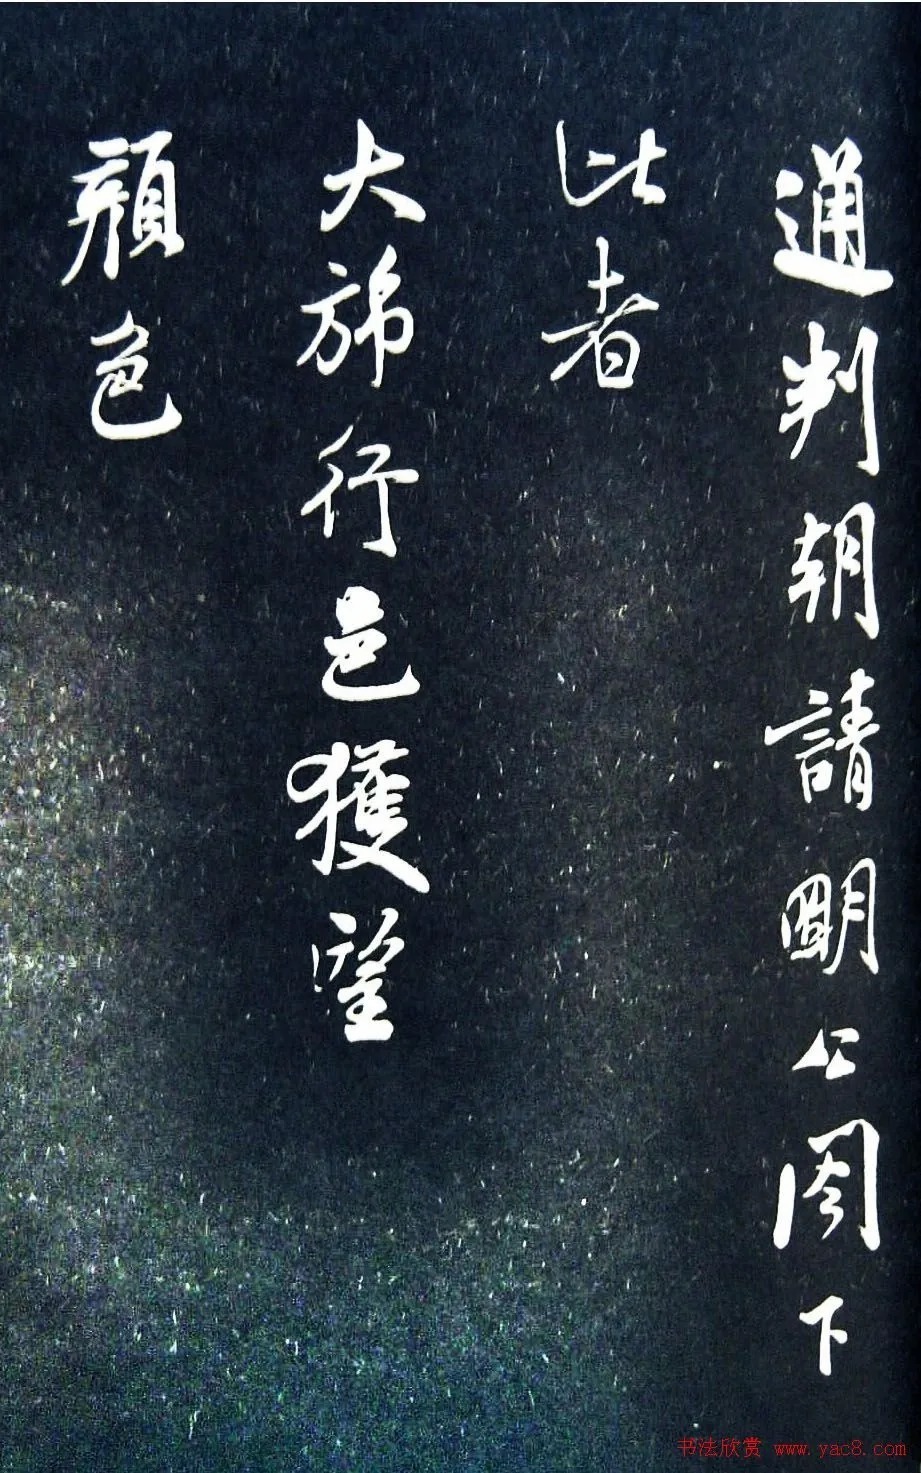 通判朝請明公閣下
此者
大旆行色獲望
顏色
书法欣赏 www.yac8.com